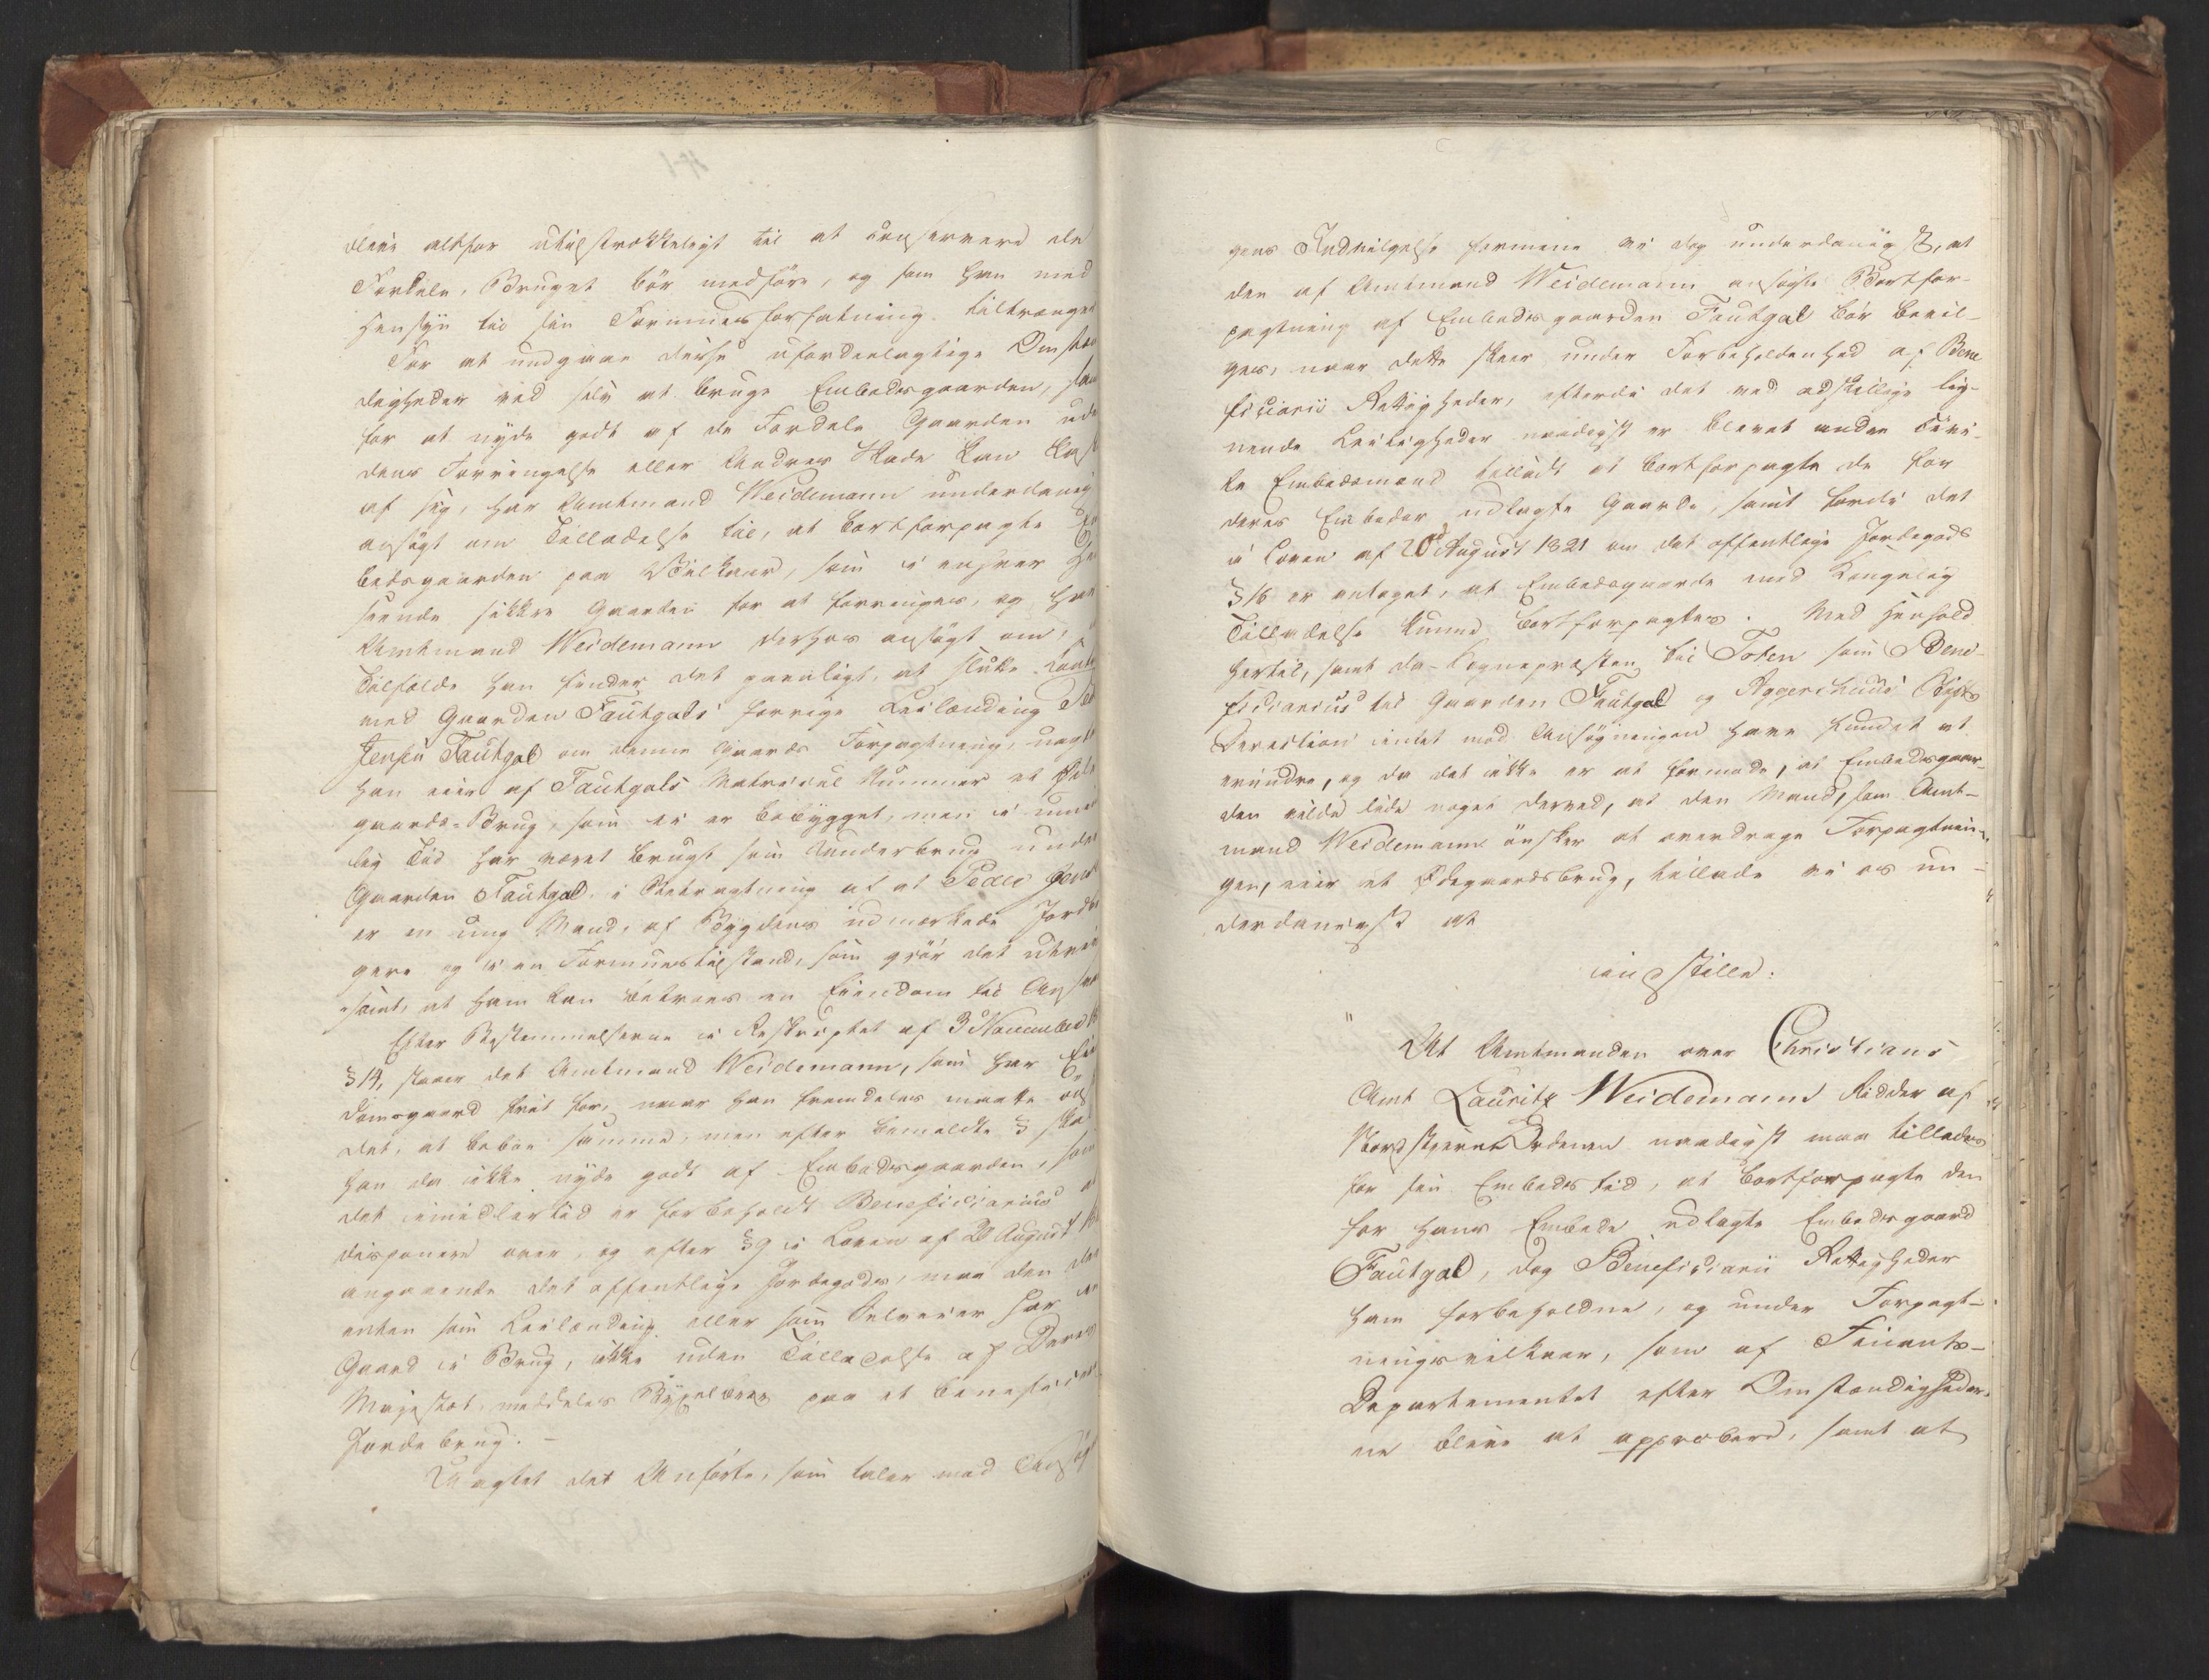 blive altfor utilstrækkeligt til at conservere de
Fordele, Bruget bör medföre, og som han med
Hensyn til sin Formuesforfatning tiltrænger
For at undgaae disse ufordeelagtige Omstæn
digheder ved selv at bruge Embedsgaarden, sam
for at nyde godt af de Fordele Gaarden ude
dens Forringelse eller Andres Skade kan kas
af sig, har Amtmand Weidemann underdanig
ansögt om Tilladelse til, at bortforpagte Em
bedsgaarden paa Vilkaar, som i enhver Hen
seende sikkre Gaarden for at forringes, og har
Amtmand Weidemann derhos ansögt om, i
Tilfælde han finder det gavnligt, at slutte Contr
med Gaarden Fautgals forrige Leilænding Ped
Jensen Fautgal om denne Gaards Forpagtning, uagt
han eier af Fautgals Matricul Nummer et Øde
gaards-Brug, som ei er bebygget, men i umin
lig Tid har været brugt som Underbrug under
Gaarden Fautgal, i Betragtning af at Peder Jens
er en ung Mand, af Bygdens udmærkede Jordbr
gere og i en Formuestilstand, som gjör det utvivl
somt, at ham kan betroes en Eiendom til
Efter Bestemmelserne i Reskriptet af 3 November
§ 14, staaer det Amtmand Weidemann, som har Eien
domsgaard frit for, naar han fremdeles maatte öns
det, at beboe samme, men efter bemeldte § skal
han da ikke nyde godt af Embedsgaarden, som
det imidlertid er forbeholdt Beneficiarius at
disponere over, og efter § 9 i Loven af 20 August
angaaende det offentlige Jordegods, maa den der
enten som Leilænding eller som Selveier har en
Gaard i Brug, ikke uden Tilladelse af Deres
Majestæt, meddeles Bygselbrev paa et beneficeret
Jordebrug. –
Uagtet det Anförte, som taler mod Ansög
gens Indvilgelse formene vi dog underdanigst, at
den af Amtmand Weidemann ansögte Bortfor-
pagtning af Embedsgaarden Fautgal bör bevil-
ges, naar dette skeer under Forbeholdenhed af Bene
ficiarii Rettigheder, efterdi det ved adskillige lig-
nende Leiligheder naadigst er blevet andre Civi-
le Embedsmænd tilladt at bortforpagte de for
deres Embeder udlagte Gaarde, samt fordi det
i Loven af 20 August 1821 om det offentlige Jordegods
§ 16 er antaget, at Embedsgaarde med Kongelig
Tilladelse kunne bortforpagtes. Med Henhold
hertil, samt da Sognepræsten til Toten som Bene-
ficiarius til Gaarden Fautgal og Aggershuus Stifts
Direction intet mod Ansögningen have fundet at
erindre, og da det ikke er at formode, at Embedsgaar-
den vilde lide noget derved, at den Mand, som Amt-
mand Weidemann önsker at overdrage Forpagtnin-
gen, eier et Ödegaardsbrug, tillade vi os un-
derdanigst at
indstille:
" At Amtmanden over Christians
Amt Lauritz Weidemann Ridder af
Nordstjerne Ordenen naadigst maa tillades
for sin Embedstid, at bortforpagte den
for hans Embede udlagte Embedsgaard
Fautgal, dog Beneficiarii Rettigheder
ham forbeholdne, og under Forpagt-
ningsvilkaar, som af Finants-
Departementet efter Omstændigheder-
ne blive at approbere, samt at